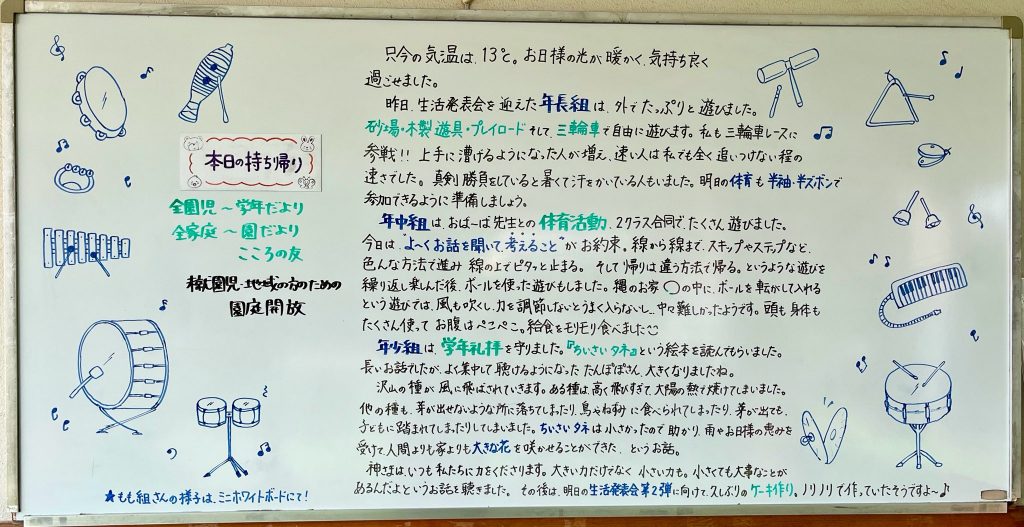 本日の持ち帰り
全園児～学年だより
全家庭～園だより
こころの友
園児・地域の方のための
園庭開放
★もも組さんの様子は、ミニホワイトボードにて！
只今の気温は、13℃。お日様の光が、暖かく、気持ち良く
過ごせました。
昨日、生活発表会を迎えた年長組は、外でたっぷりと遊びました。
砂場・木製遊具・プレイロードそして、三輪車で自由に遊びます。私も三輪車レースに
参戦！！上手に漕げるようになった人が増え、速い人は私でも全く追いつけない程の
速さでした。真剣勝負をしていると暑くて汗をかいている人もいました。明日の体育も半袖・半ズボンで
参加できるように準備しましょう。
年中組は、おばーば先生との体育活動。2クラス合同で、たくさん遊びました。
今日は、"よ～くお話を聞いて、考えること"がお約束。線から線まで、スキップやステップなど、
色んな方法で進み 線の上でピタッと止まる。そして帰りは違う方法で帰る。というような遊びを
繰り返し楽しんだ後、ボールを使った遊びもしました。縄のお家○の中に、ボールを転がして入れる
という遊びでは、風も吹くし、力を調節しないとうまく入らないし…中々難しかったようです。頭も身体も
たくさん使って お腹はぺこぺこ。給食をモリモリ食べました
年少組は、学年礼拝を守りました。『ちいさいタネ』という絵本を読んでもらいました。
長いお話でしたが、よく集中して聴けるようになった たんぽぽさん。大きくなりましたね。
沢山の種が、風に飛ばされていきます。ある種は、高く飛びすぎて、太陽の熱で焼けてしまいました。
他の種も、芽が出せないような所に落ちてしまったり、鳥やねずみに食べられてしまったり、芽が出ても、
子どもに踏まれてしまったりしてしまいました。ちいさいタネは小さかったので助かり、雨やお日様の恵みを
受けて人間よりも家よりも大きな花を咲かせることができた、というお話。
神さまは、いつも私たちに力をくださります。大きい力だけでなく 小さい力も。小さくても大事なことが
あるんだよというお話を聴きました。その後は、明日の生活発表会第2弾に向けて、久しぶりのケーキ作り。ノリノリで作っていたそうですよ～♪